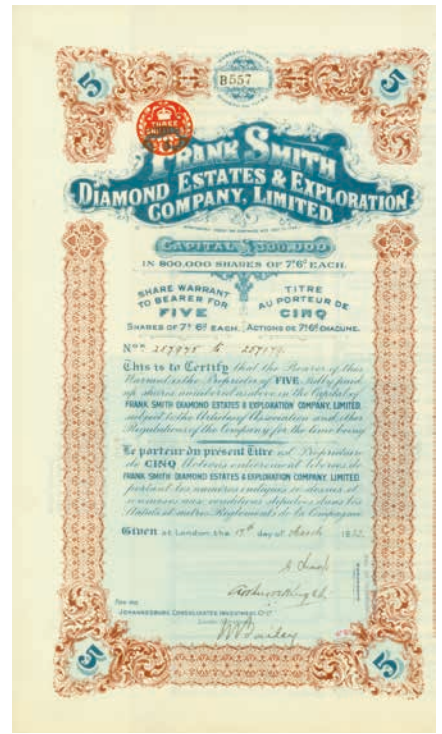 5
B557
5
THREE
FRANK SMITH
DIAMOND ESTATES & EXPLORATION
COMPANY, LIMITED.
CAPITAL £300,000
IN 800,000 SHARES OF 7/6 EACH.
SHARE WARRANT TO BEARER FOR FIVE
SHARES OF 7/ 6D EACH.
TITRE AU PORTEUR DE CINQ
ACTIONS DE 7/6D CHACUNE.
This is to Certify that the Bearer of this
Warrant is the Proprietor of FIVE fully paid
up shares numbered as above in the Capital of
FRANK SMITH DIAMOND ESTATES & EXPLORATION COMPANY, LIMITED,
subject to the Articles of Association and other
Regulations of the Company for the time being
Le porteur du présent Titre est Propriétaire
de CINQ Actions entièrement libérées de
FRANK SMITH DIAMOND ESTATES & EXPLORATION COMPANY, LIMITED
portant les numéros indiqués ci-dessus et
soumises aux conditions stipulées dans les
Statuts et autres Règlements de la Compagnie
Given at London, the day of March
FOR THE
JOHANNESBURG CONSOLIDATED INVESTMENT CO
5
5